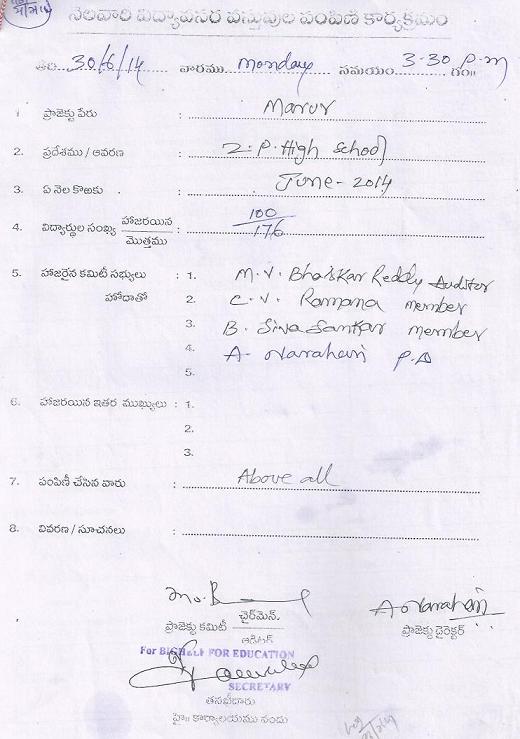 నెలవారి విద్యావసర వస్తువుల పంపిణి కార్యక్రమం
తేది. 30/6/14 వారము Monday సమయం 3-30 P.m గం॥
1 ప్రాజెక్టు పేరు : Marur
2. ప్రదేశము / ఆవరణ : Z.P. High School
3. ఏ నెల కొఱకు : June - 2014
4. విద్యార్థుల సంఖ్య హాజరయిన / మొత్తము : 100 / 176
5. హాజరైన కమిటీ సభ్యులు : 1. M.V. Bhaskar Reddy Auditor
హోదాతో 2. C.V. Ramana member
3. B. Siva Sankar member
4. A. Narahari P.D
5.
6. హాజరయిన ఇతర ముఖ్యులు : 1.
2.
3.
7. పంపిణీ చేసిన వారు : Above all
8. వివరణ / సూచనలు :
ఛైర్మెన్. A Narahari
ప్రాజెక్టు కమిటీ ప్రాజెక్టు డైరెక్టర్
ఆడిటర్
For BIG HELP FOR EDUCATION
SECRETARY
తనఖీదారు
హై॥ కార్యాలయము నందు